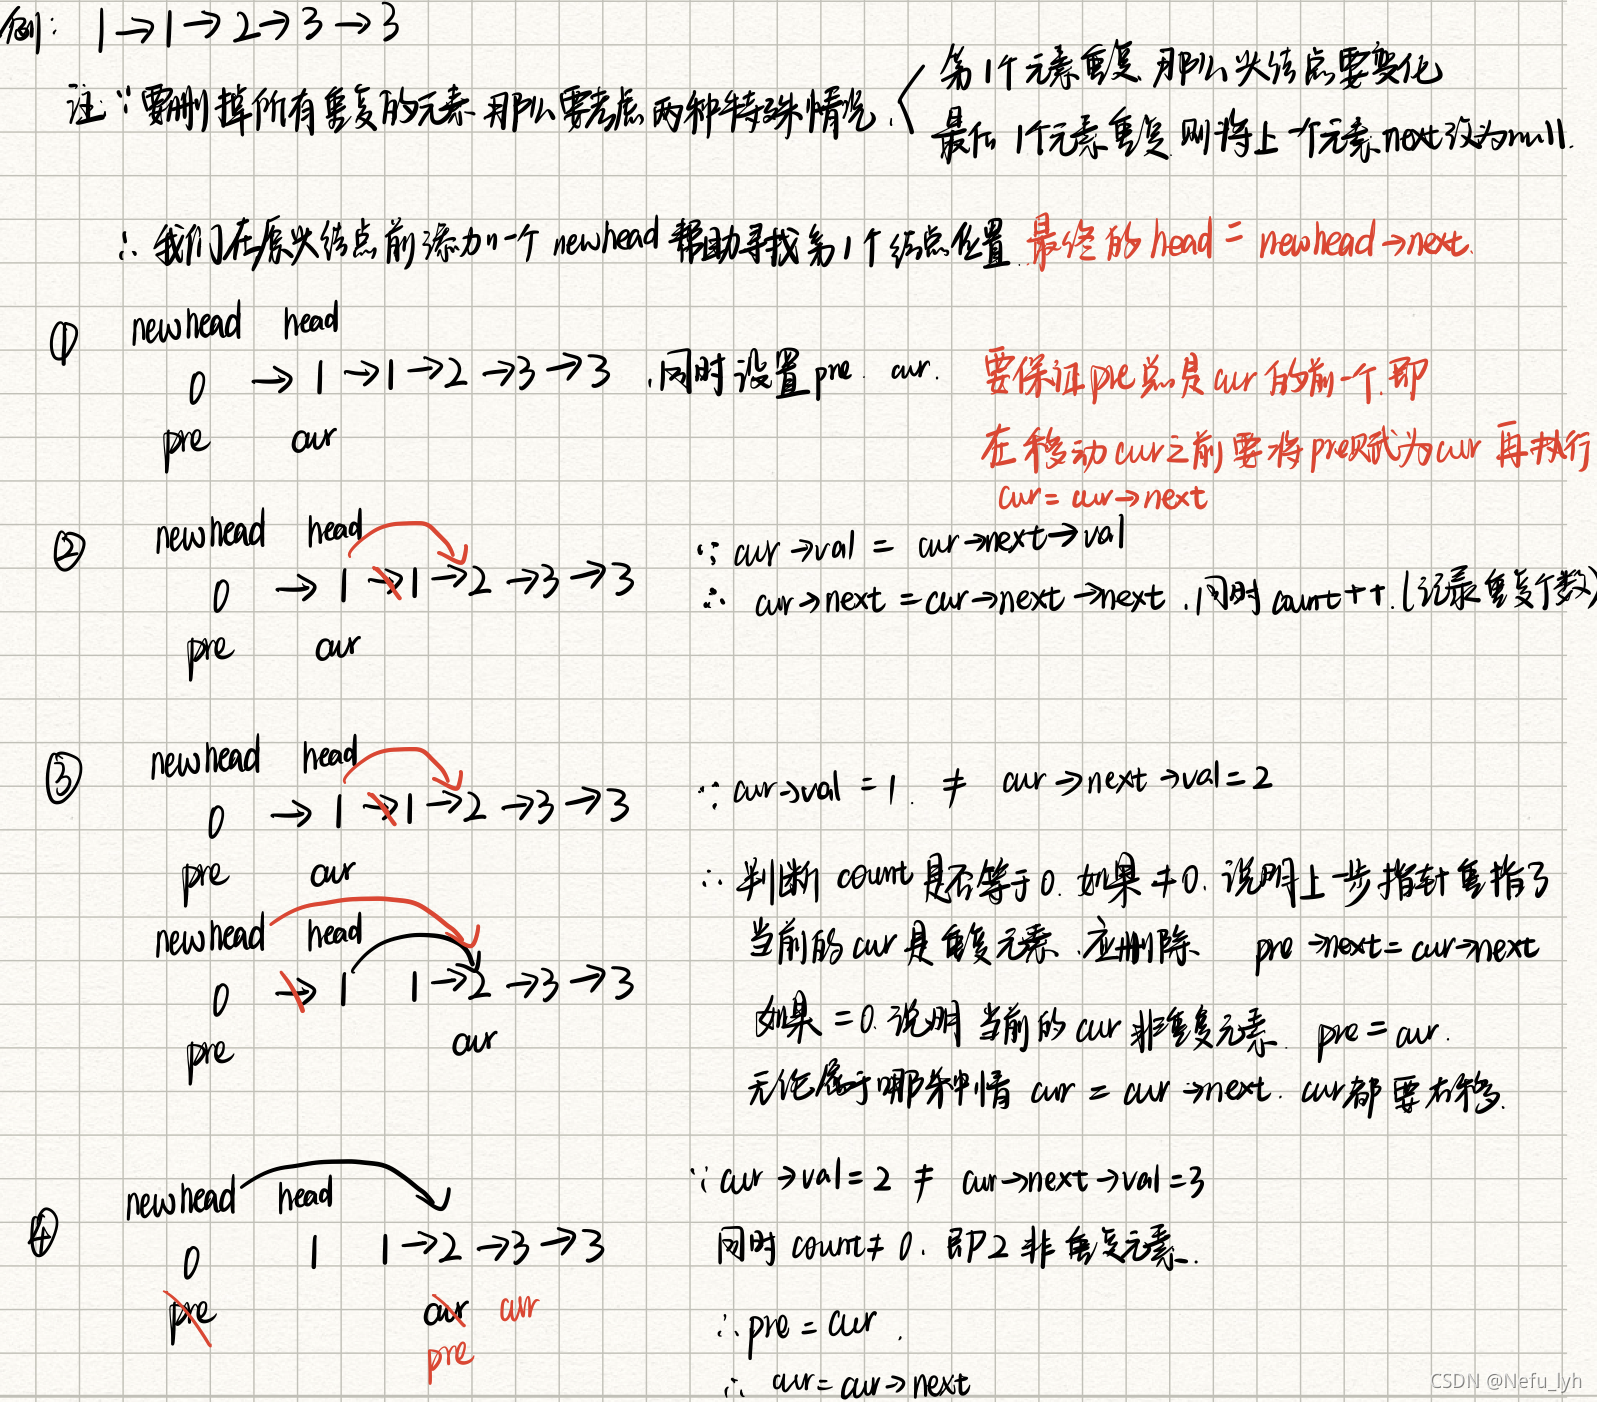 例: 1→1→2→3→3
注:∵要删掉所有重复的元素.那么要考虑两种特殊情况.
第1个元素重复.那么头结点要变化
最后1个元素重复.则将上一个元素next设为null.
∴我们在原头结点前添加一个newhead帮助寻找第1个结点位置.最终的head = newhead→next.
① newhead head
0 →1→1→2→3→3 .同时设置pre. cur. 要保证pre总是cur的前一个.即
pre cur 在移动cur之前要将pre赋为cur再执行
cur = cur→next
② newhead head ∵cur→val = cur→next→val
0 →1→1→2→3→3 ∴cur→next = cur→next→next .同时count++.(记录重复个数)
pre cur
③ newhead head
0 →1→1→2→3→3 ∵cur→val = 1. ≠ cur→next→val=2
pre cur ∴判断count是否等于0.如果≠0.说明上一步指针重指了
newhead head 当前的cur是重复元素.应删除. pre→next=cur→next
0 →1 1→2→3→3 如果=0.说明当前的cur非重复元素. pre=cur.
pre cur
无论属于哪种情 cur = cur→next. cur都要右移.
④ newhead head ∵cur→val=2 ≠ cur→next→val=3
0 1 1→2→3→3 同时count≠0.即2非重复元素.
pre cur cur ∴pre=cur.
pre ∴cur=cur→next
CSDN @Nefu_lyh